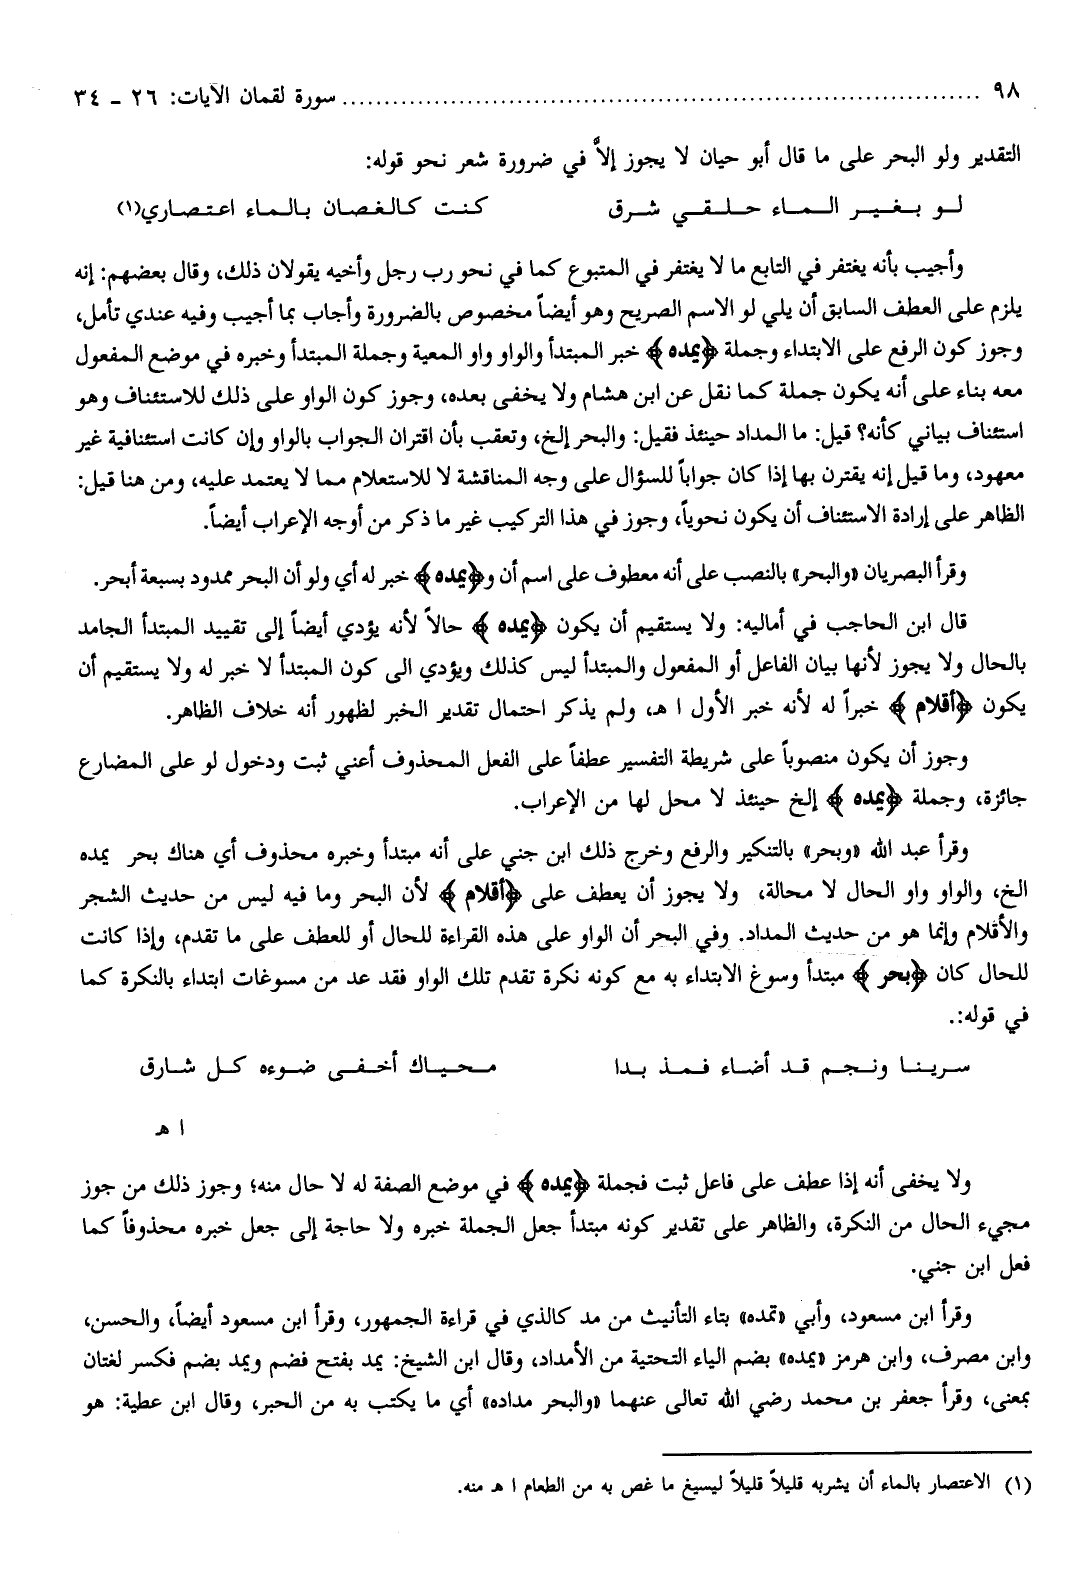 ٩٨ ........................................................................... سورة لقمان الآيات: ٢٦ ـ ٣٤
التقدير ولو البحر على ما قال أبو حيان لا يجوز إلاَّ في ضرورة شعر نحو قوله:
لـو بـغـيـر الـمـاء حـلـقـي شـرق كـنـت كـالـغـصـان بـالـمـاء اعـتـصـاري(١)
وأجيب بأنه يغتفر في التابع ما لا يغتفر في المتبوع كما في نحو رب رجل وأخيه يقولان ذلك، وقال بعضهم: إنه
يلزم على العطف السابق أن يلي لو الاسم الصريح وهو أيضاً مخصوص بالضرورة وأجاب بما أجيب وفيه عندي تأمل،
وجوز كون الرفع على الابتداء وجملة ﴿يمده﴾ خبر المبتدأ والواو واو المعية وجملة المبتدأ وخبره في موضع المفعول
معه بناء على أنه يكون جملة كما نقل عن ابن هشام ولا يخفى بعده، وجوز كون الواو على ذلك للاستئناف وهو
استئناف بياني كأنه؟ قيل: ما المداد حينئذ فقيل: والبحر إلخ، وتعقب بأن اقتران الجواب بالواو وإن كانت استئنافية غير
معهود، وما قيل إنه يقترن بها إذا كان جواباً للسؤال على وجه المناقشة لا للاستعلام مما لا يعتمد عليه، ومن هنا قيل:
الظاهر على إرادة الاستئناف أن يكون نحوياً، وجوز في هذا التركيب غير ما ذكر من أوجه الإعراب أيضاً.
وقرأ البصريان «والبحر» بالنصب على أنه معطوف على اسم أن و﴿يمده﴾ خبر له أي ولو أن البحر ممدود بسبعة أبحر.
قال ابن الحاجب في أماليه: ولا يستقيم أن يكون ﴿يمده﴾ حالاً لأنه يؤدي أيضاً إلى تقييد المبتدأ الجامد
بالحال ولا يجوز لأنها بيان الفاعل أو المفعول والمبتدأ ليس كذلك ويؤدي الى كون المبتدأ لا خبر له ولا يستقيم أن
يكون ﴿أقلام﴾ خبراً له لأنه خبر الأول ا هـ، ولم يذكر احتمال تقدير الخبر لظهور أنه خلاف الظاهر.
وجوز أن يكون منصوباً على شريطة التفسير عطفاً على الفعل المحذوف أعني ثبت ودخول لو على المضارع
جائزة، وجملة ﴿يمده﴾ إلخ حينئذ لا محل لها من الإعراب.
وقرأ عبد الله «وبحر» بالتنكير والرفع وخرج ذلك ابن جني على أنه مبتدأ وخبره محذوف أي هناك بحر يمده
الخ، والواو واو الحال لا محالة، ولا يجوز أن يعطف على ﴿أقلام﴾ لأن البحر وما فيه ليس من حديث الشجر
والأقلام وإنما هو من حديث المداد. وفي البحر أن الواو على هذه القراءة للحال أو للعطف على ما تقدم، وإذا كانت
للحال كان ﴿بحر﴾ مبتدأ وسوغ الابتداء به مع كونه نكرة تقدم تلك الواو فقد عد من مسوغات ابتداء بالنكرة كما
في قوله:.
سـريـنـا ونـجـم قـد أضـاء فـمـذ بـدا مـحـيـاك أخـفـى ضـوءه كـل شـارق
ا هـ
ولا يخفى أنه إذا عطف على فاعل ثبت فجملة ﴿يمده﴾ في موضع الصفة له لا حال منه؛ وجوز ذلك من جوز
مجيء الحال من النكرة، والظاهر على تقدير كونه مبتدأ جعل الجملة خبره ولا حاجة إلى جعل خبره محذوفاً كما
فعل ابن جني.
وقرأ ابن مسعود، وأبي «تمده» بتاء التأنيث من مد كالذي في قراءة الجمهور، وقرأ ابن مسعود أيضاً، والحسن،
وابن مصرف، وابن هرمز «يمده» بضم الياء التحتية من الأمداد، وقال ابن الشيخ: يمد بفتح فضم ويمد بضم فكسر لغتان
بمعنى، وقرأ جعفر بن محمد رضي الله تعالى عنهما «والبحر مداده» أي ما يكتب به من الحبر، وقال ابن عطية: هو
(١) الاعتصار بالماء أن يشربه قليلاً قليلاً ليسيغ ما غص به من الطعام ا هـ منه.